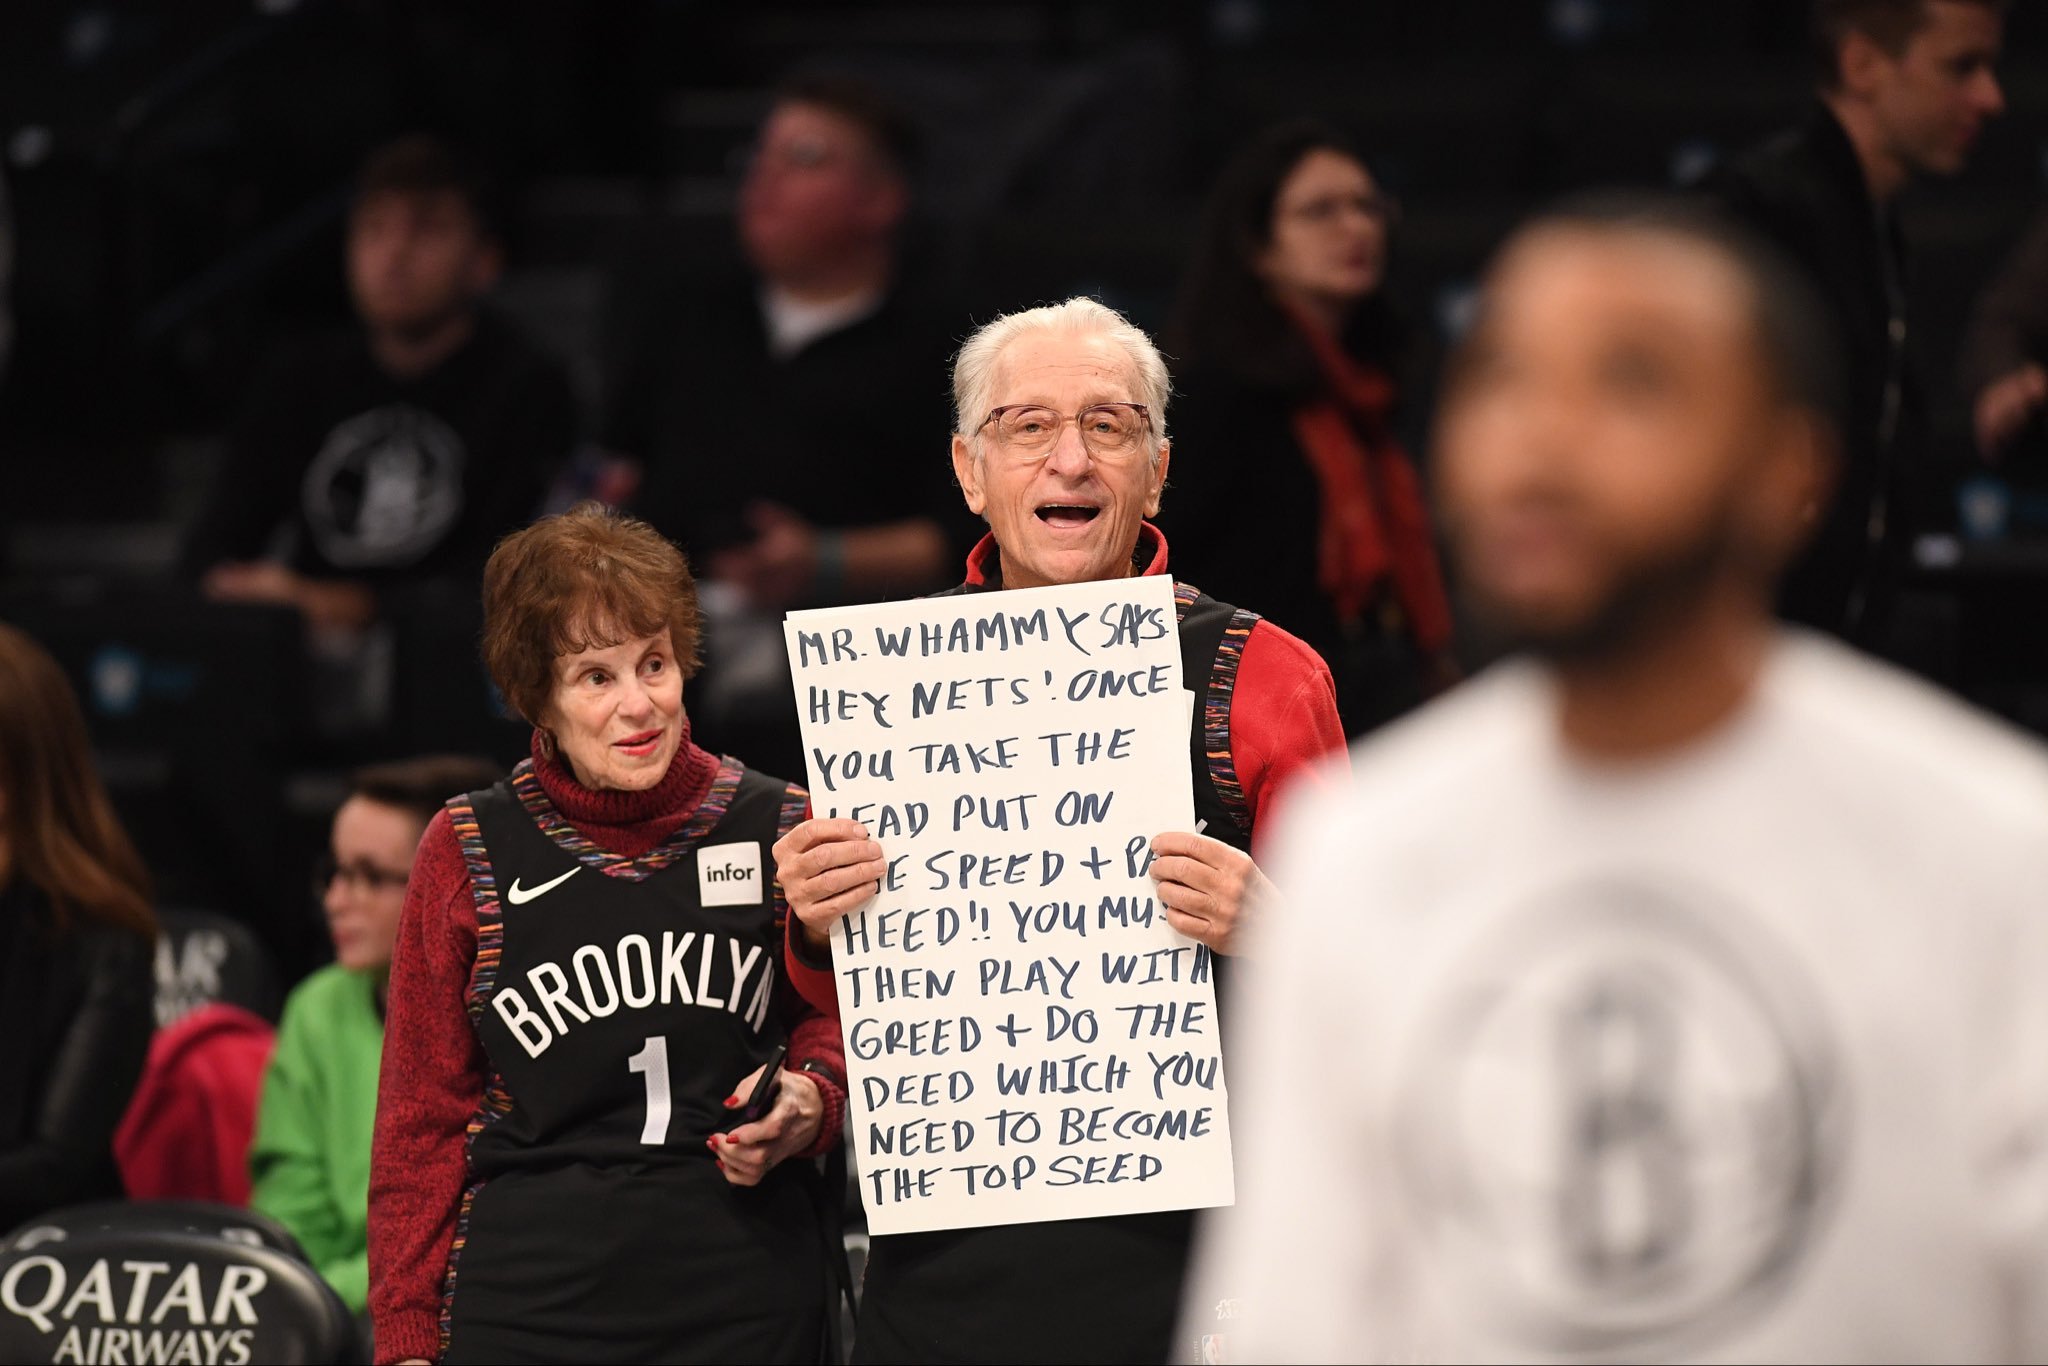 MR. WHAMMY SAYS:
HEY NETS! ONCE
YOU TAKE THE
LEAD PUT ON
THE SPEED + PAY
HEED!! YOU MUST
THEN PLAY WITH
GREED + DO THE
DEED WHICH YOU
NEED TO BECOME
THE TOP SEED
infor
BROOKLYN
1
QATAR
AIRWAYS
B